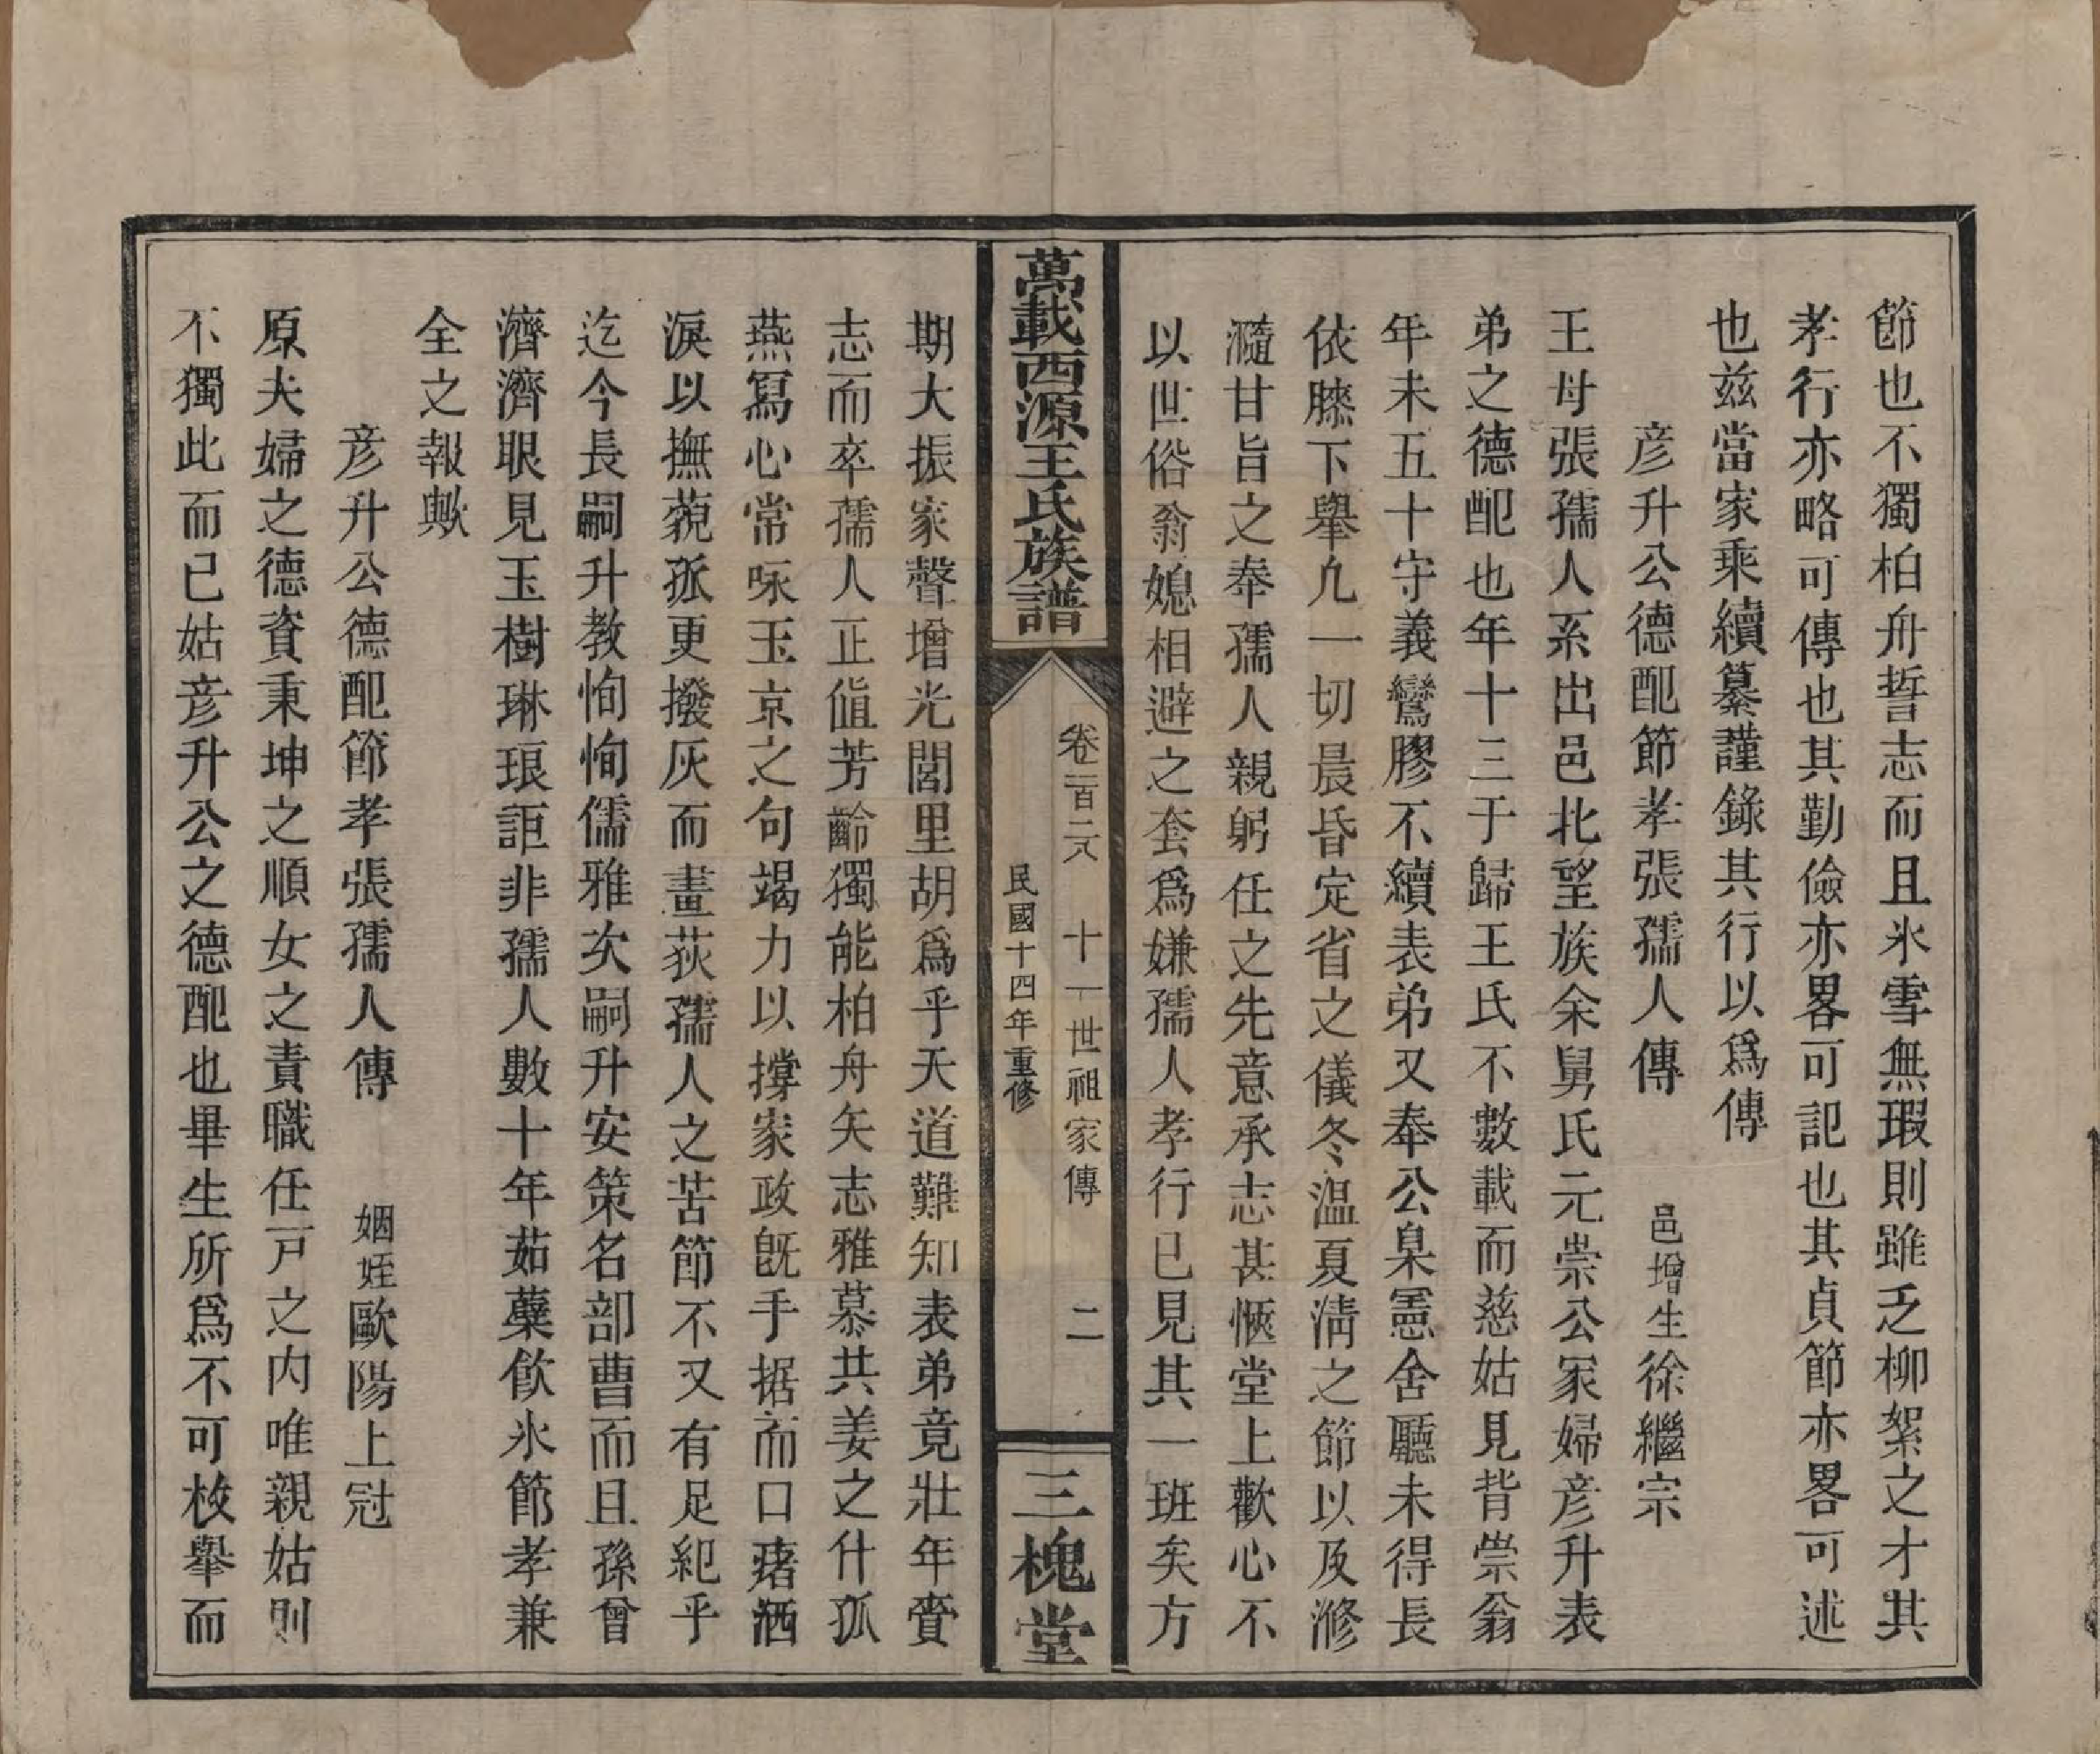 節也不獨柏舟誓志而且氷雪無瑕則雖乏柳絮之才其
孝行亦略可傳也其勤儉亦畧可記也其貞節亦畧可述
也兹當家乘續纂謹錄其行以爲傳
彥升公德配節孝張孺人傳 邑增生徐繼宗
王母張孺人系出邑北望族余舅氏元崇公冢婦彥升表
弟之德配也年十三于歸王氏不數載而慈姑見背崇翁
年未五十守義鸞膠不續表弟又奉公臬憲舍廳未得長
依膝下舉凢一切晨昏定省之儀冬温夏凊之節以及滫
瀡甘旨之奉孺人親躬任之先意承志甚愜堂上歡心不
以世俗翁媳相避之套爲嫌孺人孝行已見其一班矣方
萬載西源王氏族譜
卷二百二八 十一世祖家傳 二
民國十四年重修
三槐堂
期大振家聲增光閭里胡爲乎天道難知表弟竟壯年賫
志而卒孺人正值芳齡獨能柏舟矢志雅慕共姜之什孤
燕冩心常咏玉京之句竭力以撐家政旣手据而口瘏洒
淚以撫藐孤更撥灰而畫荻孺人之苦節不又有足紀乎
迄今長嗣升教恂恂儒雅次嗣升安策名部曹而且孫曾
濟濟眼見玉樹琳琅詎非孺人數十年茹蘖飲氷節孝兼
全之報歟
彥升公德配節孝張孺人傳 姻姪歐陽上冠
原夫婦之德資秉坤之順女之責職任戸之内唯親姑則
不獨此而已姑彥升公之德配也畢生所爲不可枚舉而